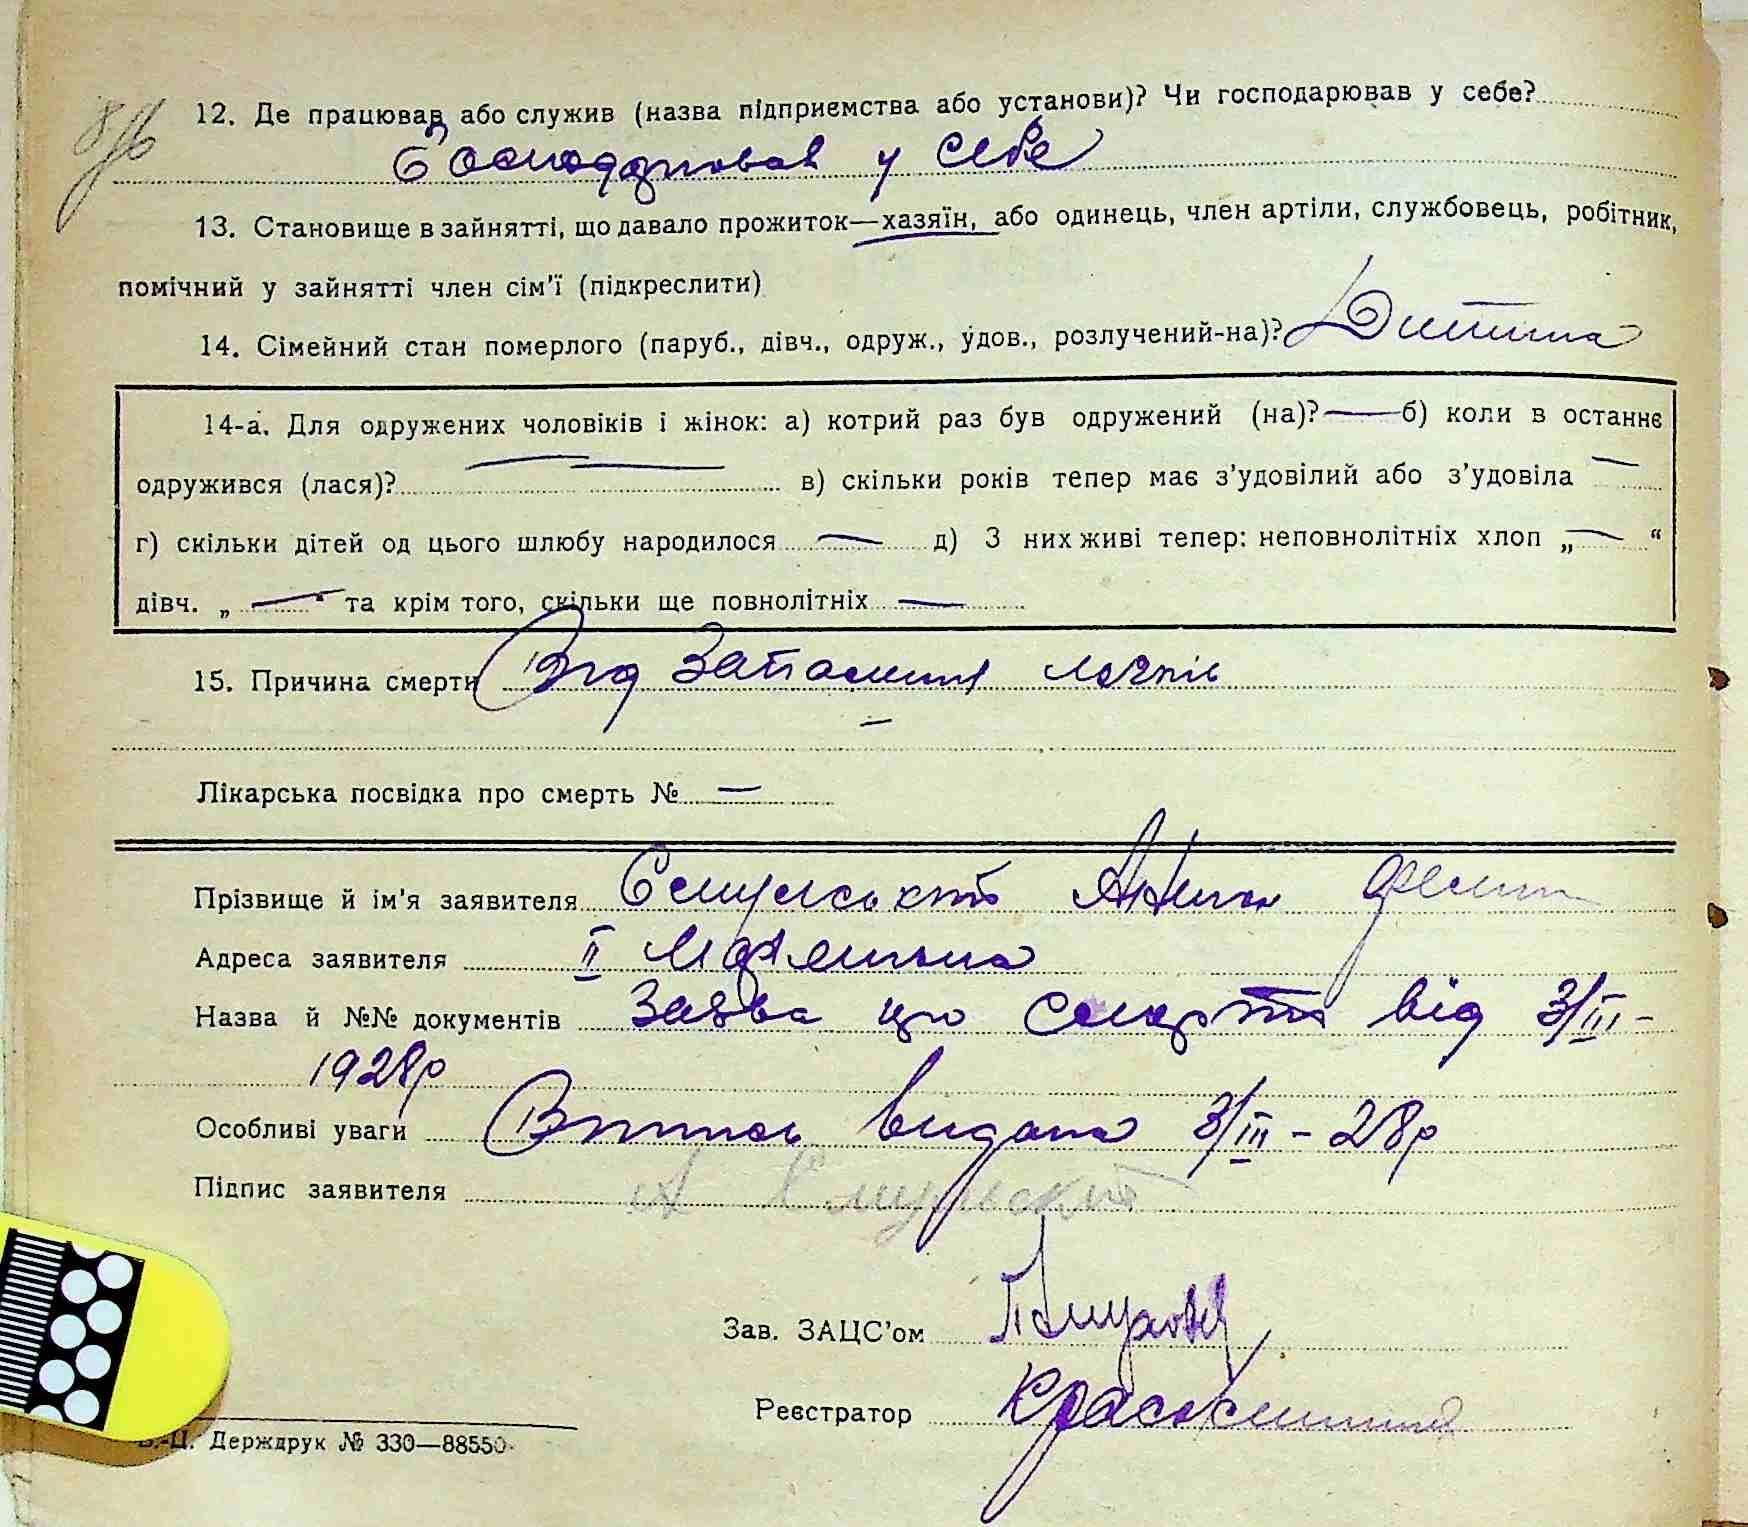 12. Де працював або служив (назва підприємства або установи)? Чи господарював у себе?
Господарював у себе
13. Становище в зайнятті, що давало прожиток—хазяїн, або одинець, член артіли, службовець, робітник,
помічний у зайнятті член сім'ї (підкреслити)
14. Сімейний стан померлого (паруб., дівч., одруж., удов., розлучений-на)? Дитина
14-а. Для одружених чоловіків і жінок: а) котрий раз був одружений (на)? — б) коли в останнє
одружився (лася)? — — в) скільки років тепер має з'удовілий або з'удовіла —
г) скільки дітей од цього шлюбу народилося — д) З них живі тепер: неповнолітніх хлоп „ — “
дівч. „ — “ та крім того, скільки ще повнолітніх —
15. Причина смерти Від Запалення легнів
—
Лікарська посвідка про смерть № —
Прізвище й ім'я заявителя
Адреса заявителя II
Назва й №№ документів Заява про смерть від 3/III-
1928р
Особливі уваги Витпись видана 3/III-28р
Підпис заявителя
Зав. ЗАЦС'ом
Реєстратор
Держдрук № 330—88550